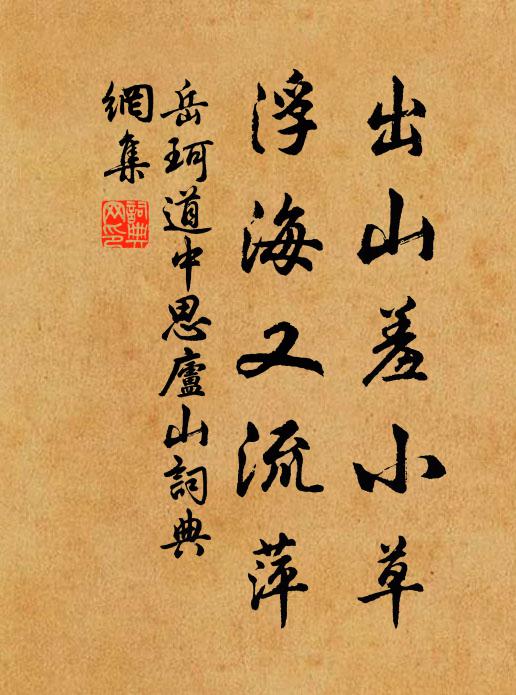 出山羞小草
浮海又流萍
岳珂道中思廬山詞典
網集
詞典
网印